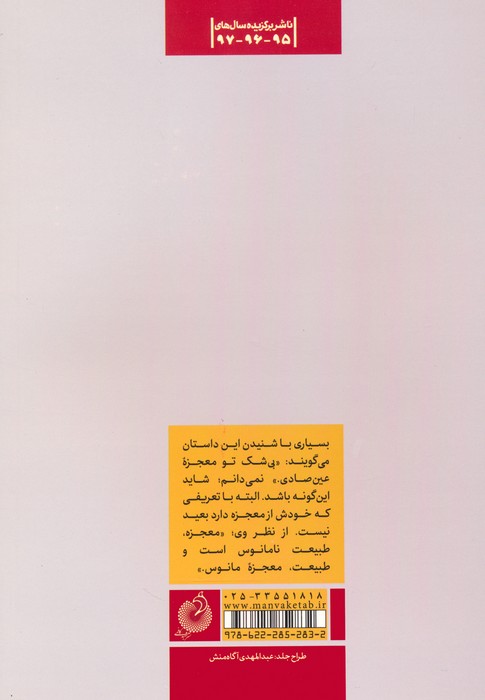 ناشر برگزیده سال‌های
۹۵-۹۶-۹۷
بسیاری با شنیدن این داستان
می‌گویند: «بی‌شک تو معجزهٔ
عین‌صادی.» نمی‌دانم؛ شاید
این‌گونه باشد. البته با تعریفی
که خودش از معجزه دارد بعید
نیست. از نظر وی: «معجزه،
طبیعت نامانوس است و
طبیعت، معجزهٔ مانوس.»
۰۲۵-۳۳۵۵۱۸۱۸
www.manvaketab.ir
978-622-285-283-2
طراح جلد: عبدالمهدی آگاه‌منش